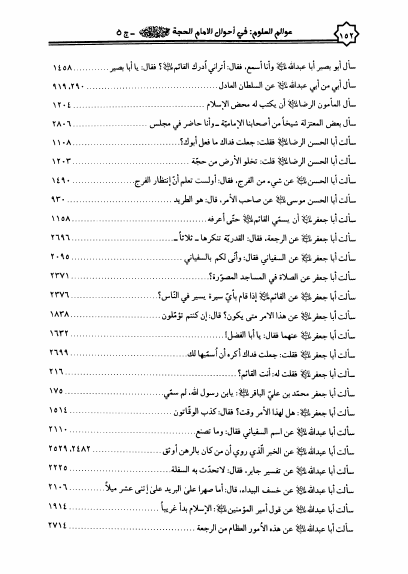 ١٥٢ عوالم العلوم: في أحوال الامام الحجة ـ ج ٥
سأل أبو بصير أبا عبدالله وأنا أسمع، فقال: أتراني أدرك القائم؟ فقال: يا أبا بصير ١٤٥٨
سأل أبي من أبي عبدالله عن السلطان العادل ٢٩٠، ٩١٩
سأل المأمون الرضا أن يكتب له محض الإسلام ١٢٠٤
سأل بعض المعتزلة شيخاً من أصحابنا الإماميّة ـ وأنا حاضر في مجلس ٢٨٠٦
سألت أبا الحسن الرضا فقلت: جعلت فداك ما فعل أبوك؟ ١١٠٨
سألت أبا الحسن الرضا قلت: تخلو الأرض من حجّة ١٢٠٣
سألت أبا الحسن عن شيء من الفرج، فقال: أولست تعلم أنّ إنتظار الفرج ١٤٩٠
سألت أبا الحسن موسى عن صاحب الأمر، قال: هو الطريد ٩٣٠
سألت أبا جعفر أن يسمّي القائم حتّى أعرفه ١١٥٨
سألت أبا جعفر عن الرجعة، فقال: القدريّة تنكرها ـ ثلاثاً ـ ٢٦٩٦
سألت أبا جعفر عن السفياني فقال: وأنّى لكم بالسفياني ٢٠٩٥
سألت أبا جعفر عن الصلاة في المساجد المصوّرة؟ ٢٣٧١
سألت أبا جعفر عن القائم إذا قام بأيّ سيرة يسير في النّاس؟ ٢٣٧٦
سألت أبا جعفر عن هذا الامر متى يكون؟ قال: إن كنتم تؤمّلون ١٨٣٨
سألت أبا جعفر عنهما فقال: يا أبا الفضل! ١٦٣٢
سألت أبا جعفر فقلت: جعلت فداك أكره أن أسمّيها لك ٢٦٩٩
سألت أبا جعفر فقلت له: أنت القائم؟ ٢١٦
سألت أبا جعفر محمّد بن عليّ الباقر: يابن رسول الله، لم سمّي ١٧٥
سألت أبا جعفر: هل لهذا الأمر وقت؟ فقال: كذب الوقّاتون ١٥١٤
سألت أبا عبدالله عن اسم السفياني فقال: وما تصنع ٢١١٠
سألت أبا عبدالله عن الخبر الّذي روي أن من كان بالرهن أوثق ٢٤٨٢، ٢٥٢٩
سألت أبا عبدالله عن تفسير جابر، فقال: لاتحدّث به السفلة ٢٢٢٥
سألت أبا عبدالله عن خسف البيداء، قال: أما صهرا على البريد على إثنى عشر ميلاً ٢١٠٦
سألت أبا عبدالله عن قول أمير المؤمنين: الإسلام بدأ غريباً ١٩١٤
سألت أبا عبدالله عن هذه الأمور العظام من الرجعة ٢٧١٤